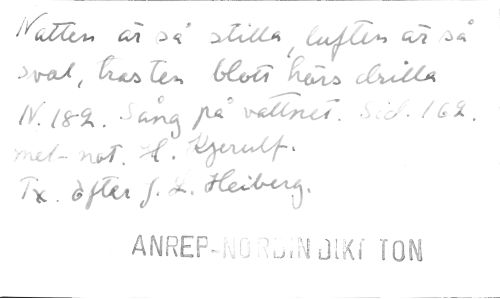 Natten är så stilla, luften är så
sval, trasten blott hörs drilla
N. 182. Sång på vattnet. Sid. 162.
mel-not. H. Kjerulf.
Tx. efter J. L. Heiberg.
ANREP-NORDIN DIKT TON